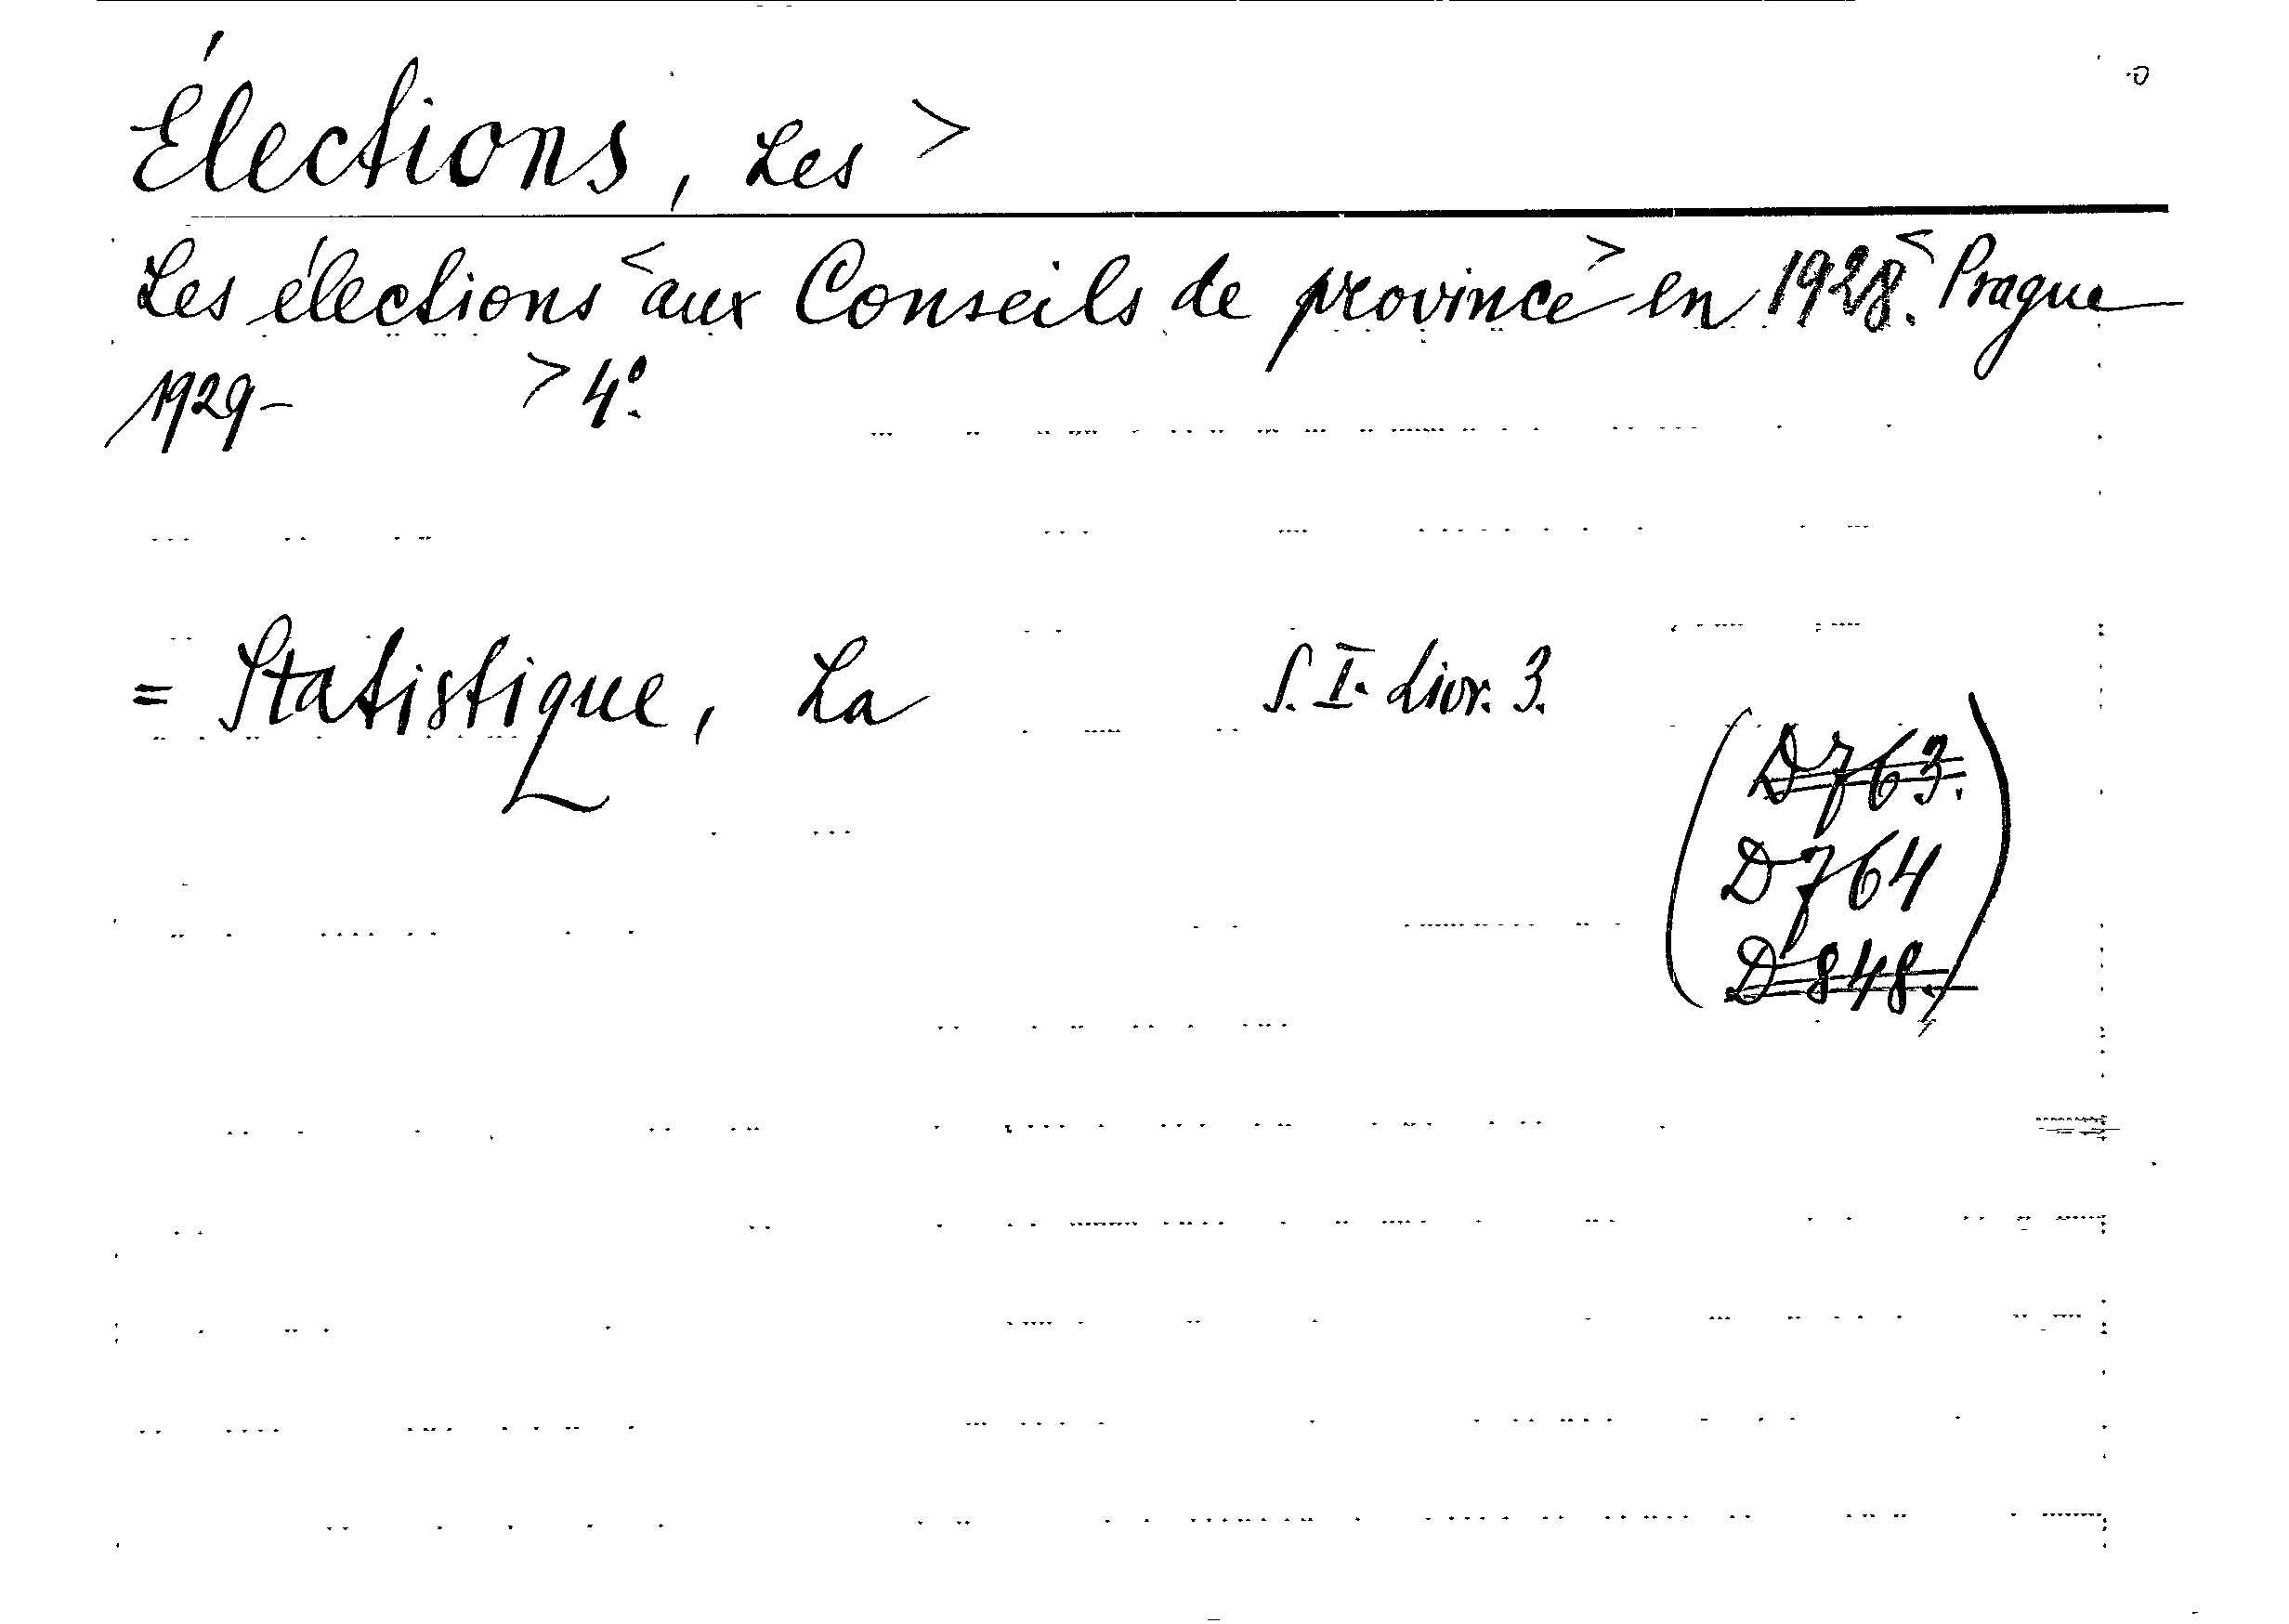 Élections, Les >
Les élections < aux Conseils de province > en 1928. < Prague
1929- > 4°.
= Statistique, La S. I. Livr. 3.
(D763.
D764
D848.)